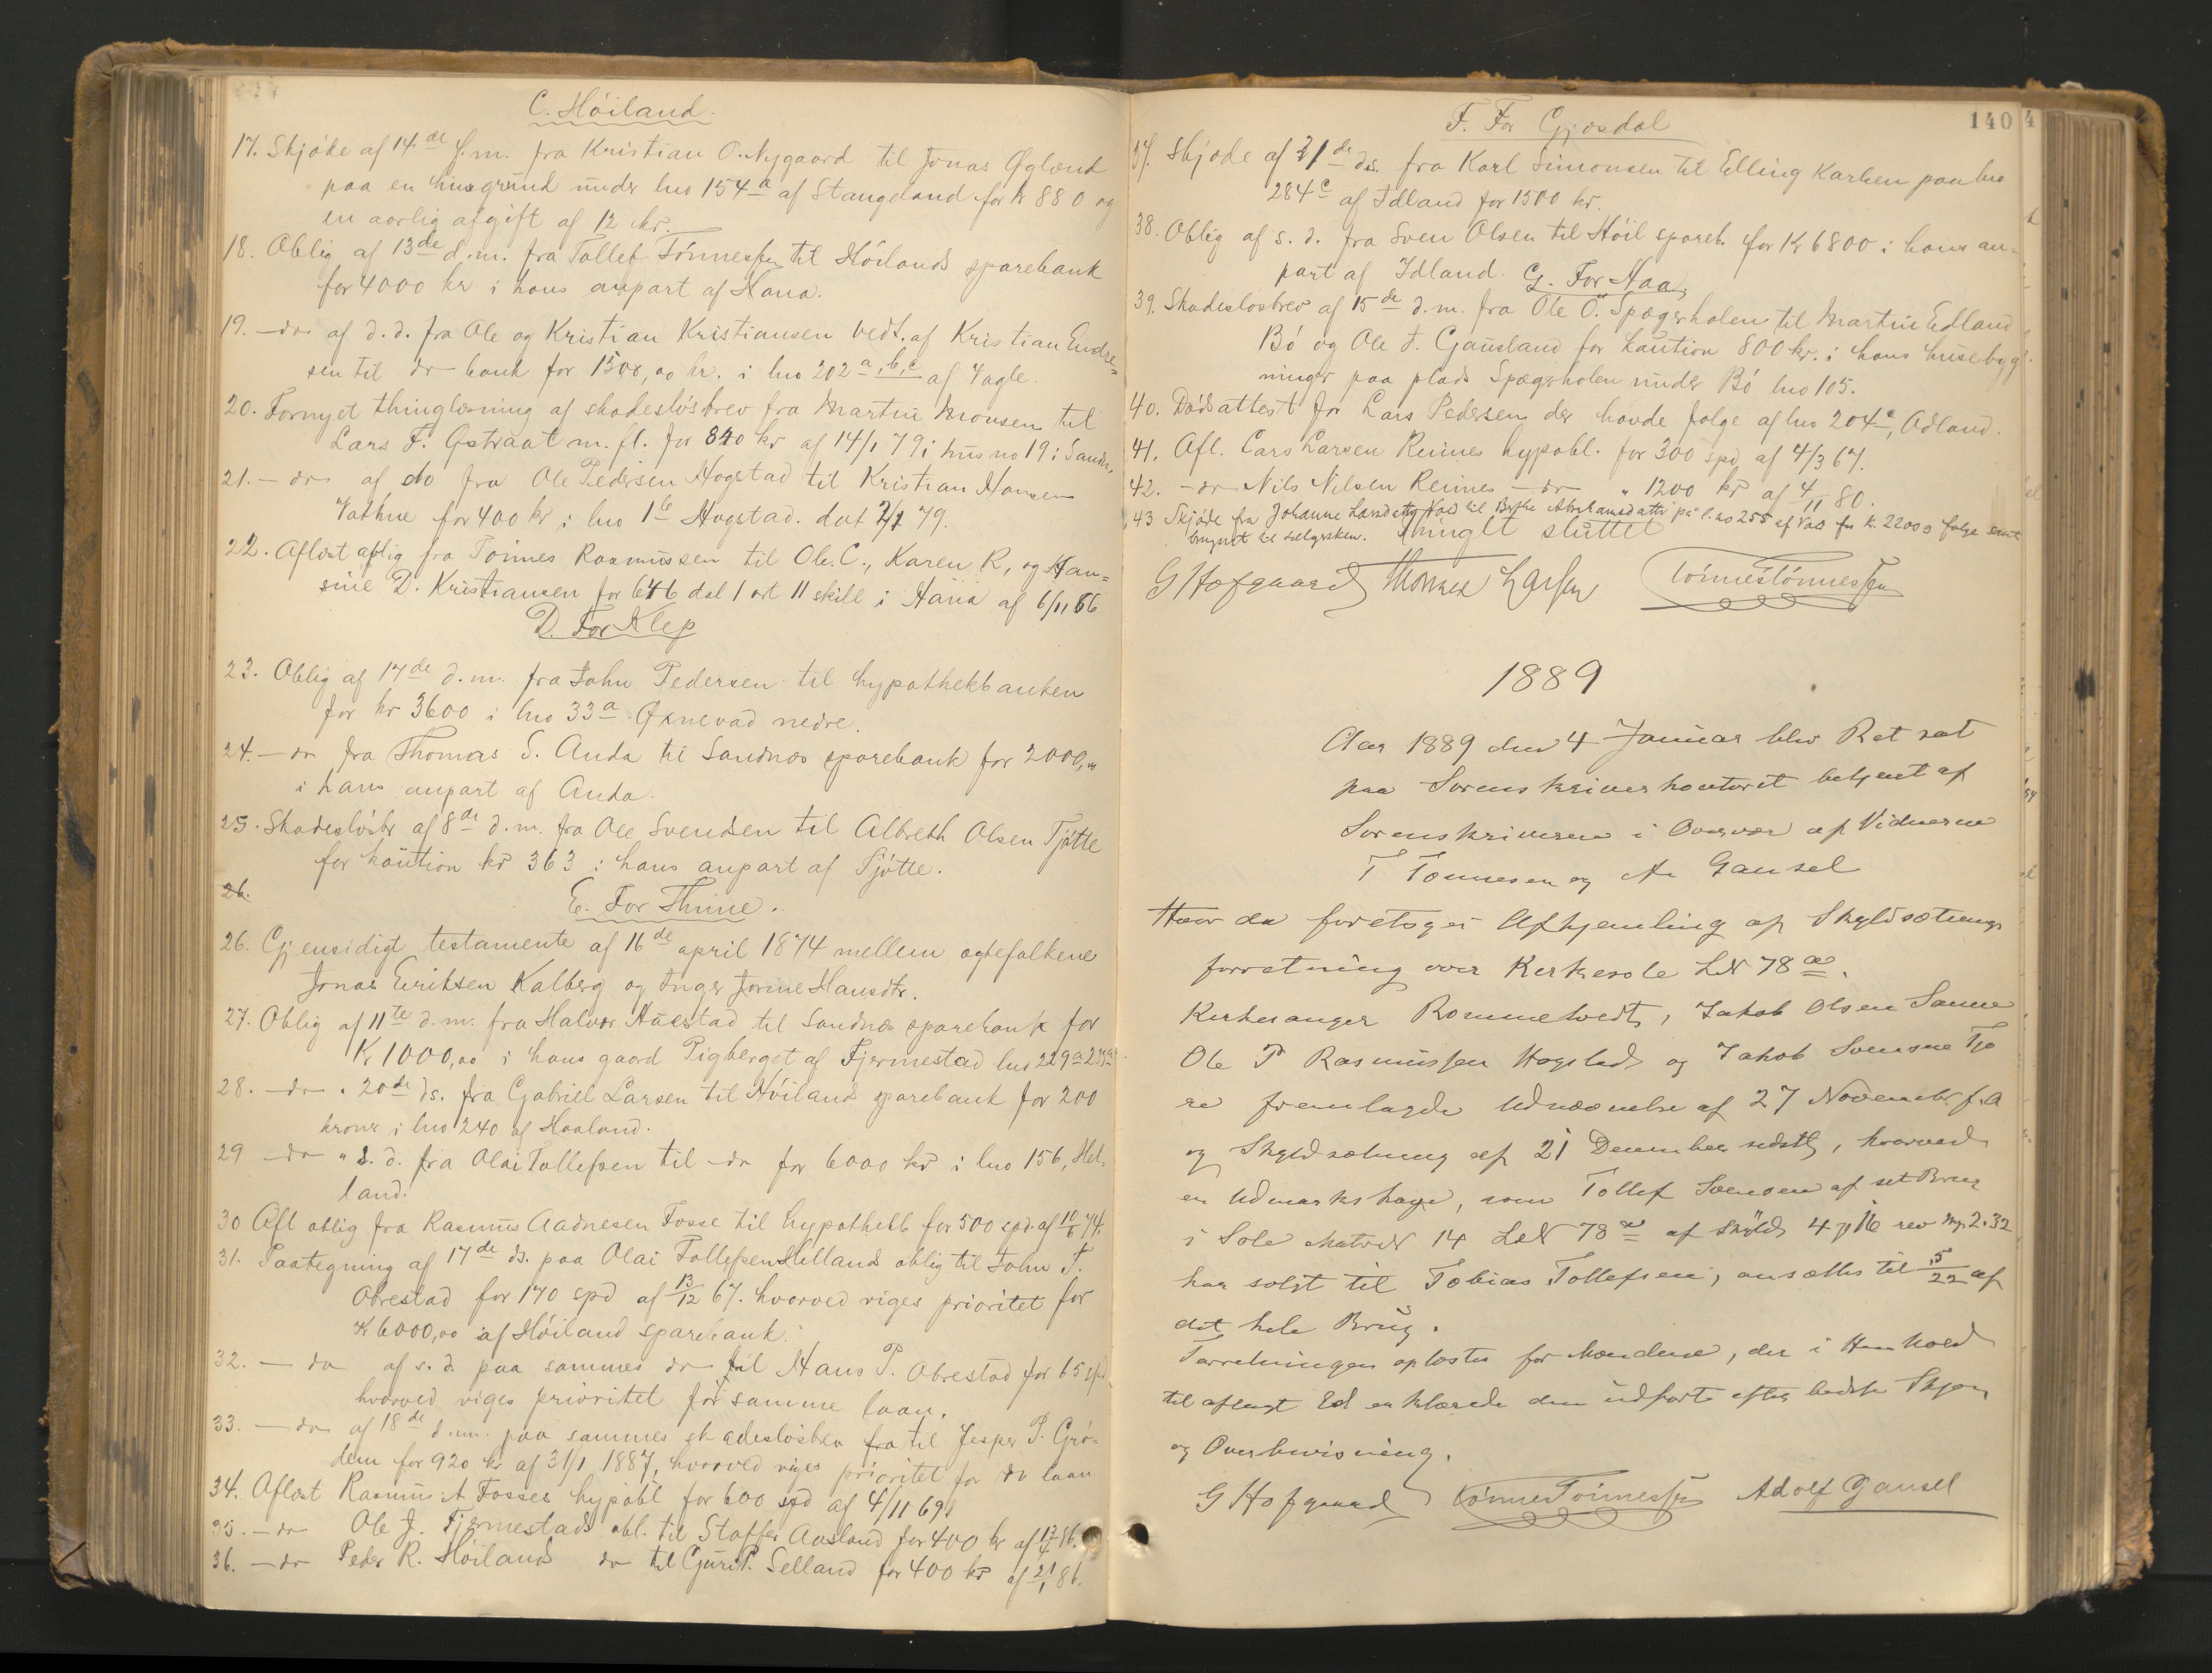 C. Höiland.
17. Skjöde af 14de f.m. fra Kristian O. Nygaard til Jonas Øglænd
paa en husgrund under lno 154a af Stangeland for kr 880 og
en aarlig afgift af 12 kr.
18. Oblig af 13de d.m. fra Tollef Tönnessen til Höilands sparebank
for 4000 kr i hans anpart af Hana.
19. – do af d.d. fra Ole og Kristian Kristiansen vedt. af Kristian Endre-
sen til do bank for 1500,00 kr. i lno 202 a, b, c af Vagle.
20. Fornyet thinglæsning af skadeslösbrev fra Martin Monsen til
Lars F. Gstraat m. fl. for 840 kr af 14/1 79 i hus no 19 i Sandn.
21. – do af do fra Ole Pedersen Hogstad til Kristian Hansen
Vathne for 400 kr i lno 1b Hogstad. dat 2/1 79.
22. Aflæst oblig fra Tönnes Rasmussen til Ole C., Karen R., og Han=
sine D. Kristiansen for 646 dal 1 ort 11 skill i Hana af 6/11 66
D. For Klep
23. Oblig af 17de d.m. fra John Pedersen til hypothekbanken
for kr 3600 i lno 33a Øxnevad nedre.
24. – do fra Thomas S. Anda til Sandnæs sparebank for 2000,"
i hans anpart af Anda.
25. Skadeslösbr af 8de d.m. fra Ole Svendsen til Albreth Olsen Tjötte
for kaution kr 363 i hans anpart af Tjötte.
26.
E. For Thime.
26. Gjensidigt testamente af 16de april 1874 mellem ægtefolkene
Jonas Eriksen Kalberg og Inger Jorine Hansdtr.
27. Oblig af 11te d.m. fra Halvor Auestad til Sandnæs sparebank for
Kr 1000,00 i hans gaard Pigberget af Fjermestad lno 229a
28. – do " 20de ds. fra Gabriel Larsen til Höiland sparebank for 200
kroner i lno 240 af Haaland.
29 – do " s. d. fra Olai Tollefsen til – do for 6000 kr i lno 156, Hel-
land.
30 Afl oblig fra Rasmus Aadnesen Fosse til hypothekb for 500 spd. af 10/6 74.
31. Paategning af 17de ds. paa Olai Tollefsen Hellands oblig til John T.
Obrestad for 170 spd af 13/12 67. hvorved viges prioritet for
Kr 6000,00 af Höiland sparebank.
32. – do af s. d. paa sammes do til Hans P. Obrestad for 65 spd
hvorved viges prioritet for samme laan.
33. – do af 18de d.m. paa sammes skadeslösbrev fra til Jesper P. Grö-
dem for 920 kr af 31/1 1887, hvorved viges prioritet for do laan
34. Aflæst Rasmus A Fosses hypobl for 600 spd af 4/11 69.
35. – do Ole J. Fjermestads obl. til Staffen Aasland for 400 kr af 17/4 86.
36. – do Peder R. Höilands do til Guri P. Selland for 400 kr af 21/1 86.
140
F. For Gjæsdal
37. Skjöde af 21de ds. fra Karl Simonsen til Elling Karlsen paa lno
284c af Idland for 1500 kr.
38. Oblig af s. d. fra Sven Olsen til Höil spareb. for Kr 6800 i hans an-
part af Idland.
G. For Haa.
39. Skadeslösbrev af 15de d.m. fra Ole O. Spægerholen til Martin Edland
Bö og Ole T. Gausland for kaution 800 kr. i hans husebyg-
ninger paa plads Spægerholen under Bö lno 105.
40. Dödsattest for Lars Pedersen der havde folge af lno 204c, Odland.
41. Afl. Lars Larsen Reimes hypobl. for 300 spd af 4/3 67.
42. – do Nils Nilsen Reimes – do " 1200 kr af 4/11 80.
43 Skjöde fra Johanne Larsdatter Vold til Berthe Abrahamsdatter på l. no 255 af Vold for kr. 2200 og folge samt
brugsret til selgersken.
Thinget sluttet
G Hofgaard Thomas Larsen Tönnes Tönnessen
1889
Aar 1889 den 4 Januar blev Ret sat
paa Sorenskriverkontoret betjent af
Sorenskriveren i Overvær af Vidnerne
T Tonnesen og A. Gausel
Hvor da foretoges Afhjemling af Skyldsætnings
forretning over Kirkesole LN 78a.
Kirkesanger Rommetvedt, Jakob Olsen Sanne
Ole P Rasmussen Hogstad og Jakob Svensen Tjo
ra fremlagde Udnævnelse af 27 November f. A
og Skyldsætning af 21 December sidstl, hvorved
en Udmarkshage, som Tollef Svensen af sit Brug
i Sole MatrN 14 LN 78a af Skyld 4 p 16 rev Mp. 2.32
har solgt til Tobias Tollefsen, ansættes til 5/22 af
det hele Brug.
Forretningen oplæstes for Mændene, der i Henhold
til aflagt Ed erklærede den udfört efter bedste Skjön
og Overbevisning.
G Hofgaard Tönnes Tönnessen Adolf Gausel